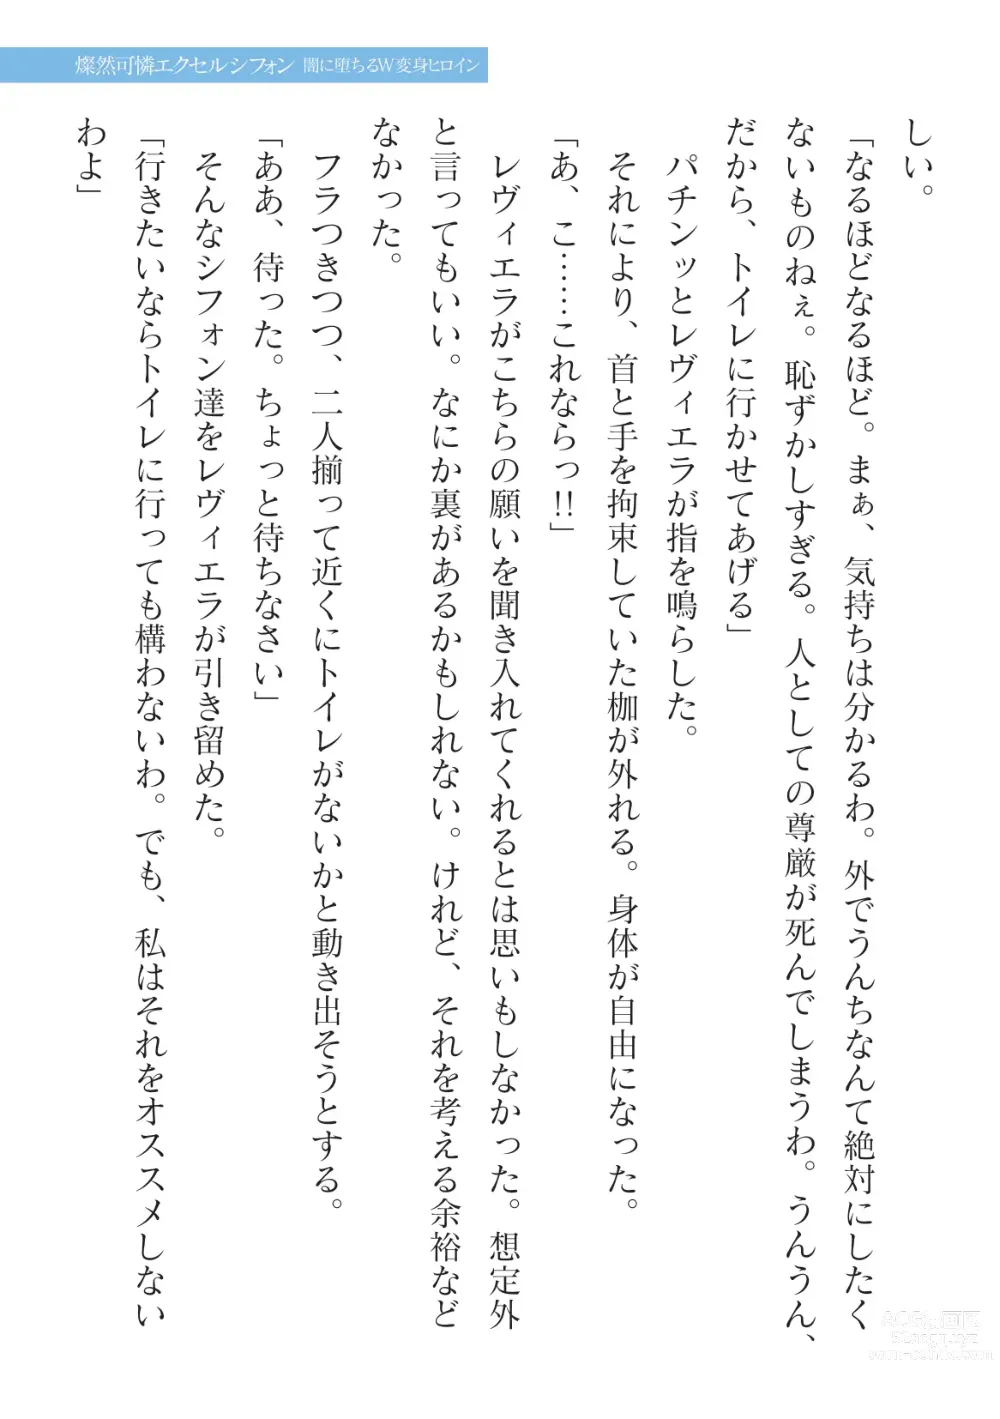 燦然可憐エクセルシフォン 闇に堕ちるW変身ヒロイン
しい。
「なるほどなるほど。まぁ、気持ちは分かるわ。外でうんちなんて絶対にしたく
ないものねぇ。恥ずかしすぎる。人としての尊厳が死んでしまうわ。うんうん、
だから、トイレに行かせてあげる」
パチンッとレヴィエラが指を鳴らした。
それにより、首と手を拘束していた枷が外れる。身体が自由になった。
「あ、こ……これならっ!!」
レヴィエラがこちらの願いを聞き入れてくれるとは思いもしなかった。想定外
と言ってもいい。なにか裏があるかもしれない。けれど、それを考える余裕など
なかった。
フラつきつつ、二人揃って近くにトイレがないかと動き出そうとする。
「ああ、待った。ちょっと待ちなさい」
そんなシフォン達をレヴィエラが引き留めた。
「行きたいならトイレに行っても構わないわ。でも、私はそれをオススメしない
わよ」